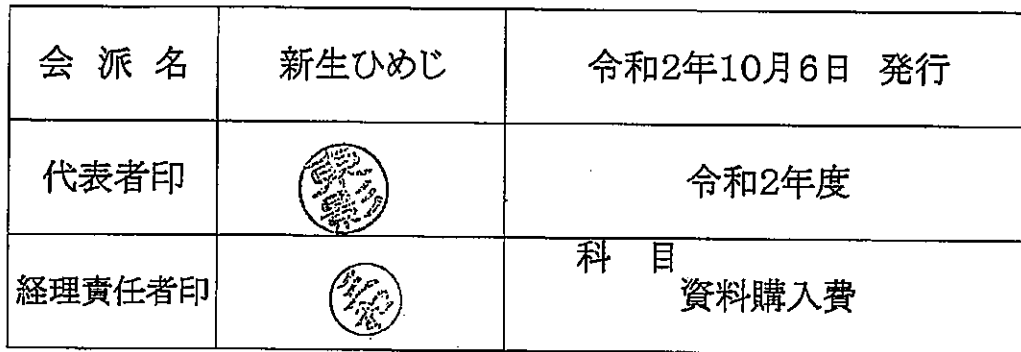 会 派 名 新生ひめじ 令和2年10月6日 発行
代表者印 令和2年度
科 目
経理責任者印 資料購入費